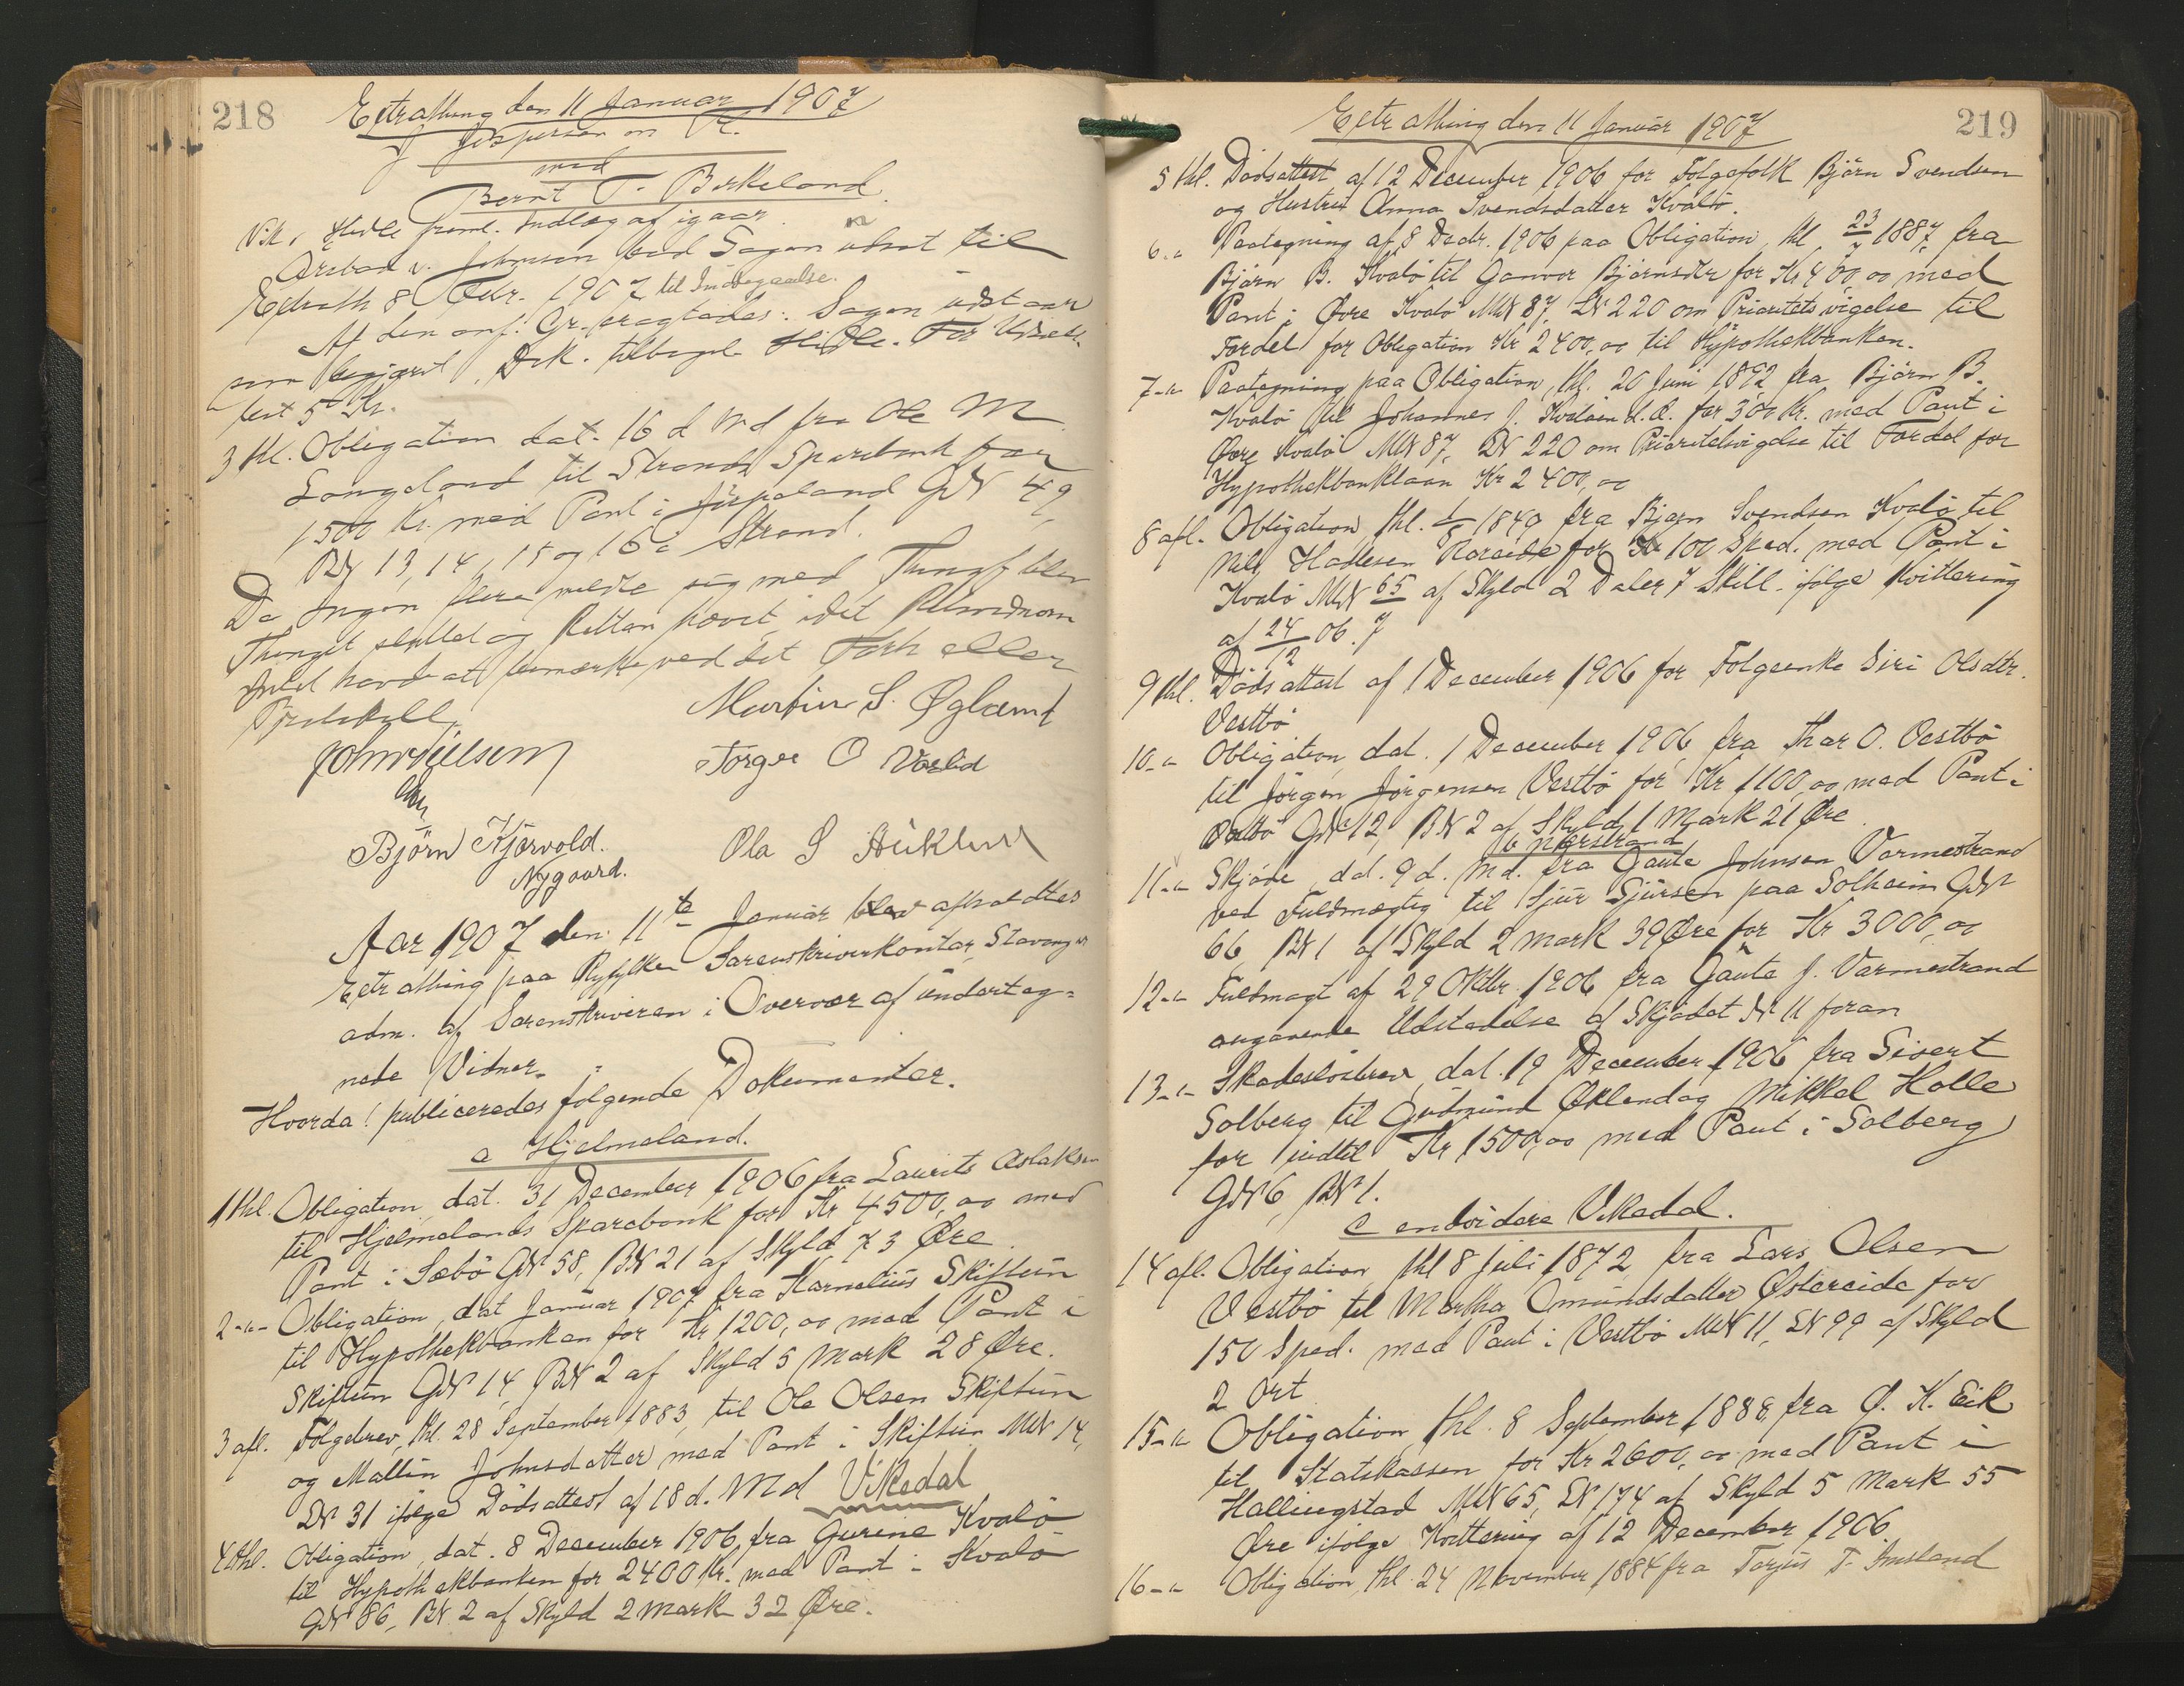 218
Extrathing den 11 Januar 1907
J. Jespersen m Fl.
med
Bernt T. Birkeland
Vik. Hidle freml. Indlæg af igaar
Arsbad v. Johnsen bad Sagen udsat til
Extrath 8 Febr. 1907 til Imødegaaelse.
Af den anf. Gr. eragtades: Sagen udstaar
som begjært, Dok. tilbagel. Hidle. For Udsæt.
test 5 Kr.
3 thl. Obligation dat. 16 d Md fra Ole M
Langeland til Strands Sparebank for
1500 Kr. med Pant i Jørpeland GN 49,
BN 13, 14, 15 og 16 i Strand.
Da Ingen flere meldte sig med Thinglf. blev
Thinget sluttet og Retten hævet, idet Almuen
Intet havde at bemærke ved det Forh eller
Martin S. Øglænd
John Nilsen
Torger O Vaslid
Bjørn Kjørvold.
Ola S
Nygaard.
Aar 1907 den 11te Januar blev afholdtes
Extrathing paa Ryfylke Sorenskriverkontor, Stavanger
adm. af Sorenskriveren i Overvær af underteg=
nede Vidner.
Hvorda! publiceredes følgende Dokumenter.
a Hjelmeland.
1 thl. Obligation, dat. 31 December 1906 fra Laurits Aslaksen
til Hjelmelands Sparebank for Kr 4500, oo med
Pant i Sæbø GN 58, BN 21 af Skyld 73 Øre.
2-"- Obligation, dat Januar 1907 fra Kornelius Skiftun
til Hypothekbanken for Kr 1200, oo med Pant i
Skiftun GN 14, BN 2 af Skyld 5 Mark 28 Øre.
3 afl. Følgebrev, thl. 28 September 1883, til Ole Olsen Skiftun
og Mallin Johnsdatter med Pant i Skiftun MN 14,
LN 31 ifølge Dødsattest af 18 d. Md Vikedal
4 thl. Obligation, dat. 8 December 1906, fra Gurine Kvalø
til Hypothekbanken for 2400 Kr. med Pant i Kvalø
GN 86, BN 2 af Skyld 2 Mark 32 Øre.
Extrathing den 11 Januar 1907
219
5 thl. Dødsattest af 12 December 1906 for Følgefolk Bjørn Svendsen
og Hustru Anna Svendsdatter Kvalø.
6-" Paategning af 8 Decbr. 1906 paa Obligation, thl. 23/7 1887, fra
Bjørn B. Kvalø til Gunvor Bjørnsdtr for Kr 400, oo med
Pant i Øvre Kvalø MN 87, LN 220 om Prioritetsvigelse til
Fordel for Obligation Kr 2400, oo til Hypothekbanken.
7-"- Paategning paa Obligation, thl. 20 Juni 1892 fra Bjørn B.
Kvalø til Johannes J. Kvaløen d. æ. for 300 Kr. med Pant i
Øvre Kvalø MN 87, LN 220 om Prioritetsvigelse til Fordel for
Hypothekbanklaan Kr 2400, oo
8 afl. Obligation thl. 1/6 1840 fra Bjørn Svendsen Kvalø til
Nils Hadlesen Røreide for Kr 100 Sped. med Pant i
Kvalø MN 65 af Skyld 2 Daler 7 Skill. ifølge Kvittering
af 24/12 06.
9 thl. Dødsattest af 1 December 1906 for Følgeenke Siri Olsdtr.
Vestbø
10-" Obligation, dat. 1 December 1906, fra Thor O. Vestbø
til Jørgen Jørgensen Vestbø for Kr 1100, oo med Pant i
Vestbø GN 12, BN 2 af Skyld 1 Mark 21 Øre
b Nærstrand
11-" Skjøde, dd. 9 d. Md. fra Gaute Johnsen Varmestrand
ved Fuldmægtig til Sjur Sjursen paa Solheim GN
66, BN 1 af Skyld 2 Mark 39 Øre for Kr 3000, oo
12-" Fuldmagt af 29 Oktbr. 1906 fra Gaute J. Varmestrand
angaaende Udstedelse af Skjødet N 11 foran
13-"- Skadesløsbrev, dat. 19 December 1906 fra Sivert
Solberg til Gudmund Økland og Mikkel Halle
for indtil Kr 1500, oo med Pant i Solberg
GN 6, BN 1.
c endvidere Vikedal.
14 afl. Obligation, thl 8 Juli 1872, fra Lars Olsen
Vestbø til Martha Omundsdatter Østereide for
150 Sped. med Pant i Vestbø MN 11, LN 99 af Skyld
2 Ort
15-" Obligation, thl. 8 September 1888, fra O. K. Eik
til Statskassen for Kr 2600, oo med Pant i
Hallingstad MN 65, LN 174 af Skyld 5 Mark 55
Øre ifølge Kvittering af 12 December 1906
16-" Obligation, thl. 24 November 1884 fra Torjus T. Imsland